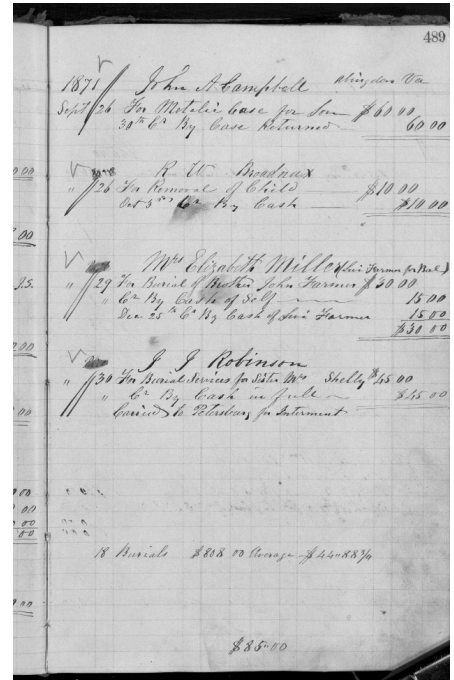 489
1871 John A. Campbell Abingdon Va
Sept 26 For Metalic Case for Son $60 00
30th Cr By Case Returned 60 00
R. W. Broadnax
" 26 For Removal of Child $10 00
Oct 3rd Cr By Cash $10 00
Mrs Elizabeth Miller (Levi Farmer for Bal)
" 29 For Burial of Brother John Farmer $30 00
" Cr By Cash of Self 15 00
Dec 25th Cr By Cash of Levi Farmer 15 00
$30 00
J. J. Robinson
" 30 For Burial Services for Sister Mrs Shelly $45 00
" Cr By Cash in full $45 00
Carried to Petersburg for Interment
18 Burials $808 00 Average $44 88
$85 00